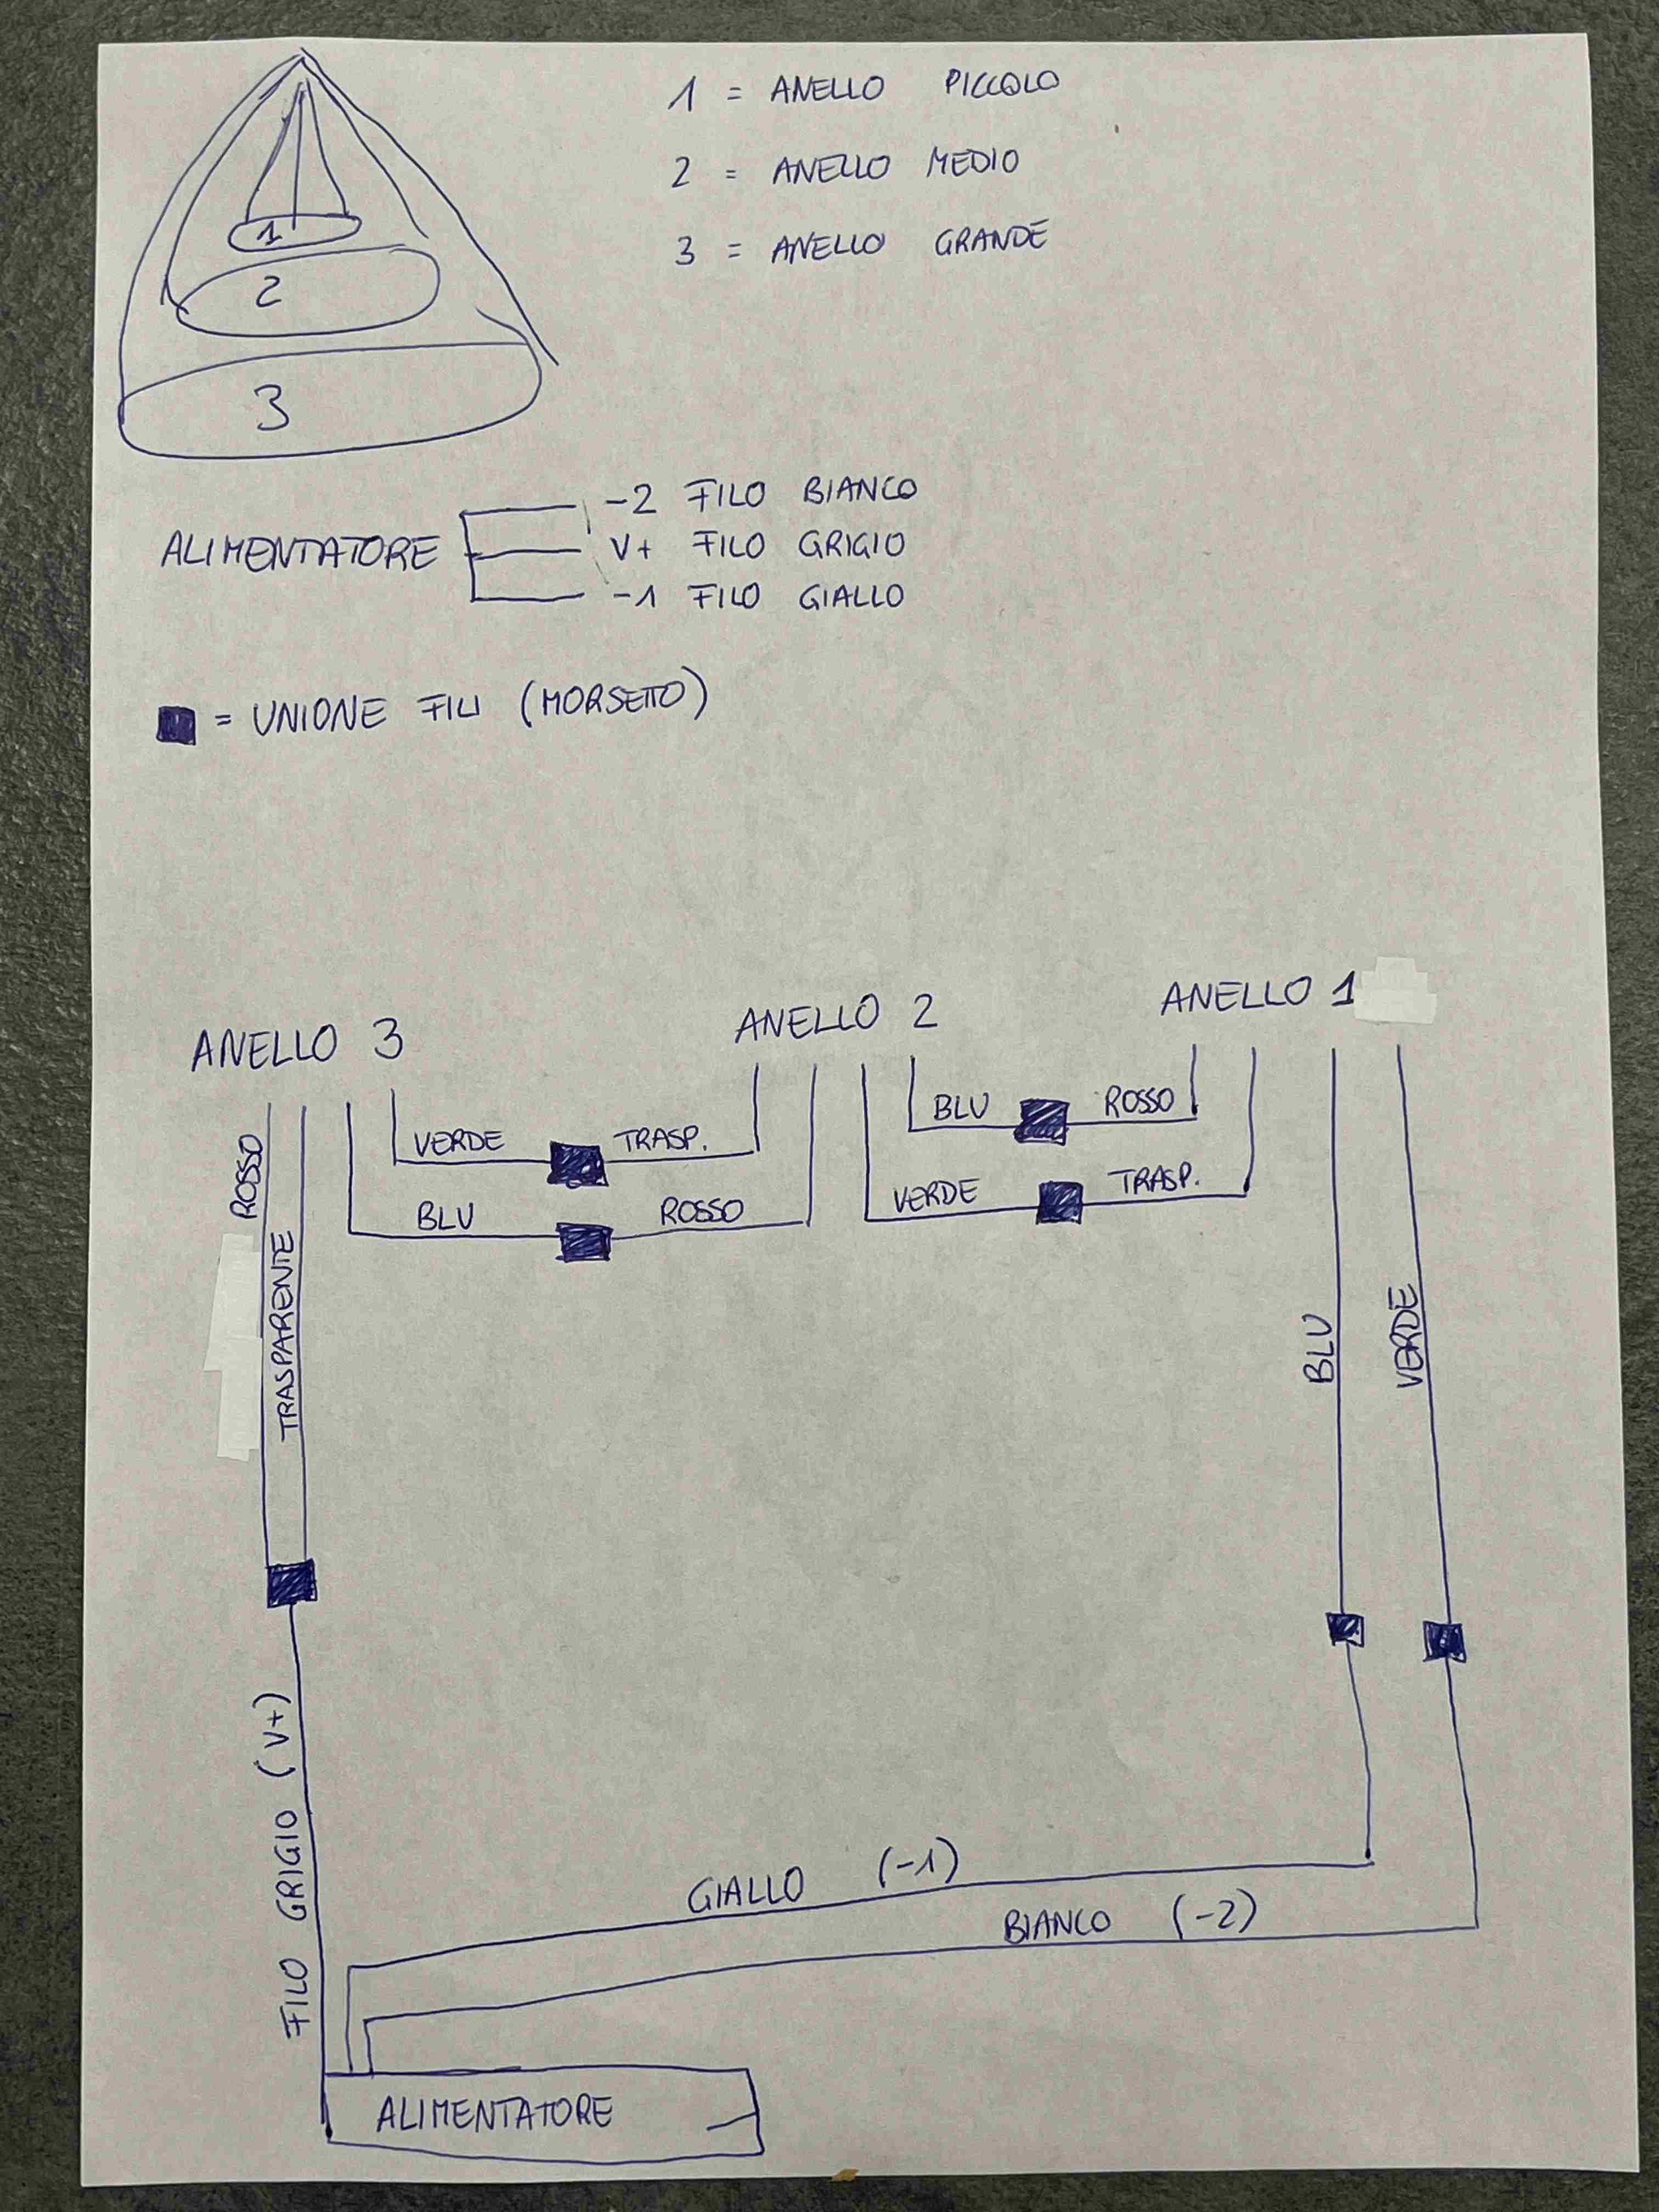 1 = ANELLO PICCOLO
2 = ANELLO MEDIO
3 = ANELLO GRANDE
1
2
3
ALIMENTATORE
-2 FILO BIANCO
V+ FILO GRIGIO
-1 FILO GIALLO
= UNIONE FILI (MORSETTO)
ANELLO 3
ANELLO 2
ANELLO 1
BLU
ROSSO
VERDE
TRASP.
VERDE
TRASP.
BLU
ROSSO
ROSSO
TRASPARENTE
BLU
VERDE
FILO GRIGIO (V+)
GIALLO (-1)
BIANCO (-2)
ALIMENTATORE